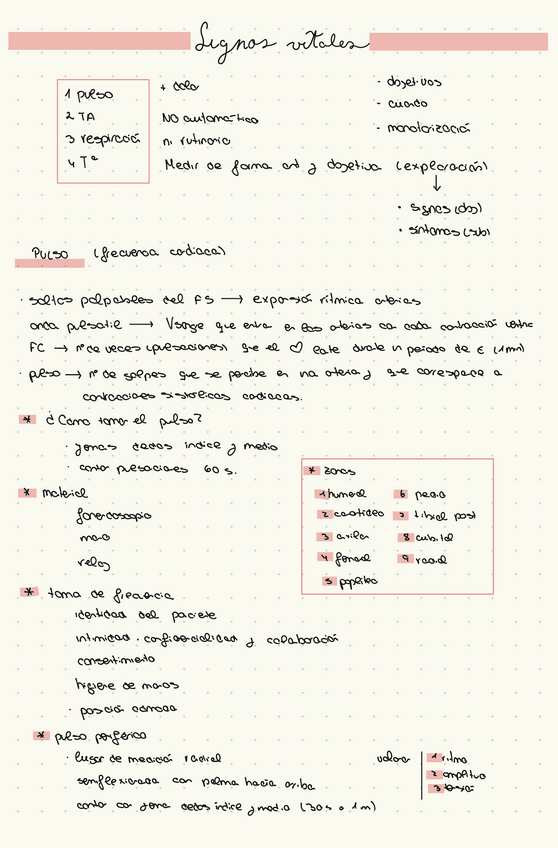 Signos vitales
1 pulso
2 TA
3 respiración
4 Tª
+ dolor
NO automático
ni rutinario
Medir de forma ord y objetiva (exploración)
- objetivos
- cuando
- monotorización
↓
• signos (obj)
• síntomas (sub)
Pulso (frecuencia cardiaca)
· saltos palpables del FS → expansión rítmica arterias
onda pulsatil → Vsangre que entra en las arterias con cada contracción ventric
FC → nº de veces (pulsaciones) que el ♡ late durante un periodo de t (1 min)
· pulso → nº de golpes que se percibe en una arteria y que corresponde a
contracciones sistólicas cardiacas.
* ¿Como tomar el pulso?
· yemas dedos índice y medio
· contar pulsaciones 60 s.
* material
fonendoscopio
mano
reloj
* zonas
1 humeral
2 carotideo
3 axilar
4 femoral
5 popliteo
6 pedio
7 tibial post
8 cubital
9 radial
* toma de frecuencia
identidad del paciente
intimidad · confidencialidad y colaboración
consentimiento
higiene de manos
· posición cómoda
* pulso periférico
· lugar de medición radial
semiflexionada con palma hacia arriba
contar con yema dedos índice y medio (30s o 1m)
valorar
1 ritmo
2 amplitud
3